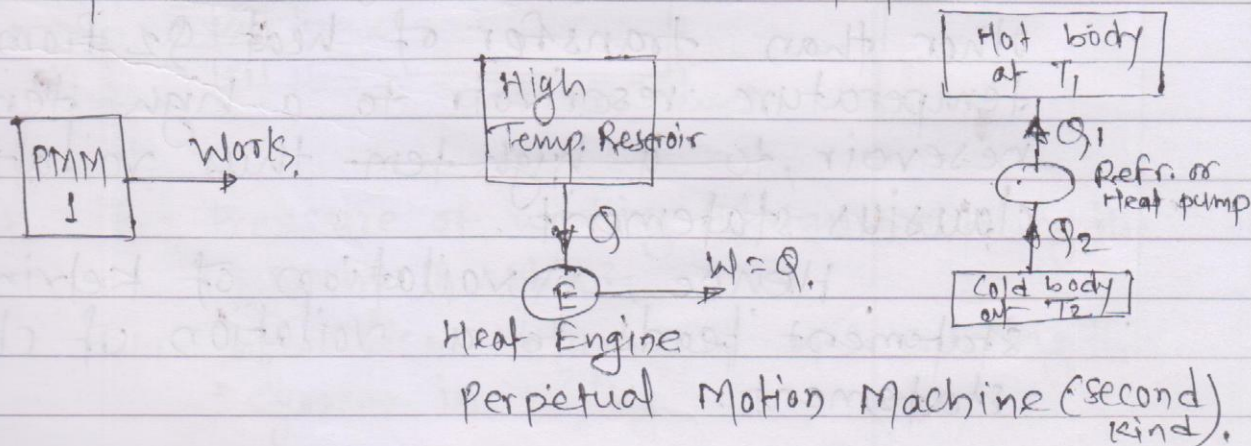 PMM
1
Works.
High
Temp. Reseroir
Q
E
W = Q.
Heat Engine
Hot body
at T1
Q1
Refr. or
Heat pump
Q2
Cold body
at T2
Perpetual Motion Machine (second
kind).